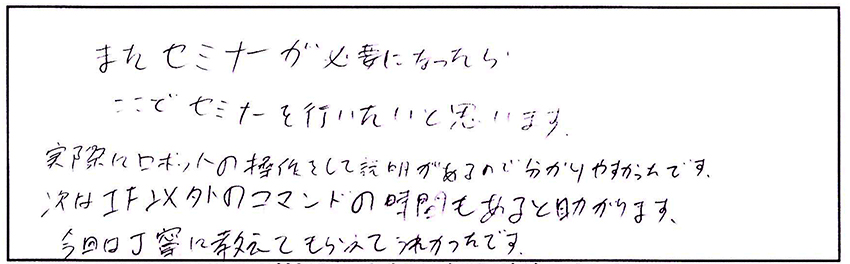 またセミナーが必要になったら
ここでセミナーを行いたいと思います。
実際にロボットの操作をして説明があるので分かりやすかったです。
次はIF以外のコマンドの時間もあると助かります。
今回は丁寧に教えてもらえてうれしかったです。